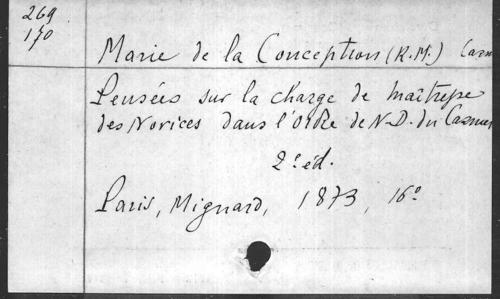 269
170
Marie de la Conception (R.M.) Carm
Pensées sur la charge de maîtresse
des Novices dans l'Ordre de N-D. du Carmel
2e éd.
Paris, Mignard, 1873, 16º